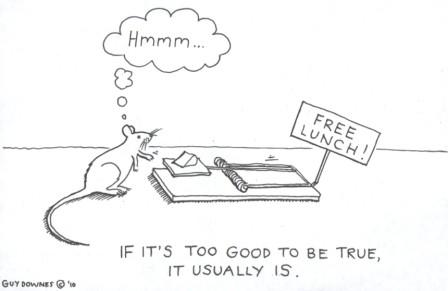 Hmmm...
FREE
LUNCH!
IF IT'S TOO GOOD TO BE TRUE,
IT USUALLY IS.
GUY DOWNES © '10